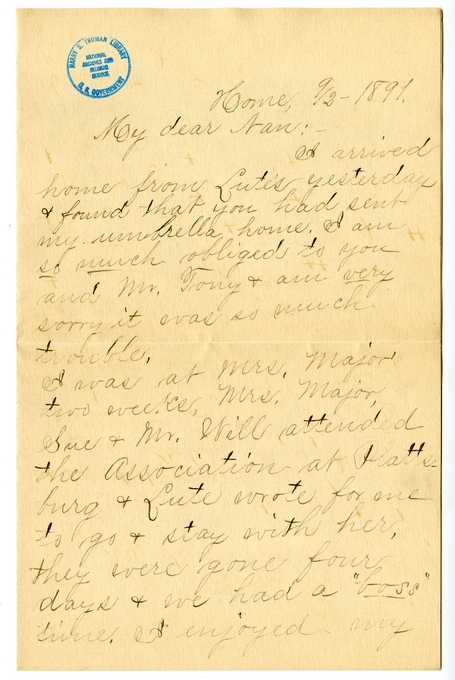 HARRY S. TRUMAN LIBRARY
NATIONAL
ARCHIVES AND
RECORDS
SERVICE
U.S. GOVERNMENT
Home, 9/2-1891.
My dear Nan:-
I arrived
home from Lute's yesterday
& found that you had sent
my umbrella home. I am
so much obliged to you
and Mr. Tony & am very
sorry it was so much
trouble.
I was at Mrs. Major
two weeks, Mrs. Major,
Sue & Mr. Will attended
the Association at Platts-
burg & Lute wrote for me
to go & stay with her,
they were gone four
days & we had a "boss"
time. I enjoyed my